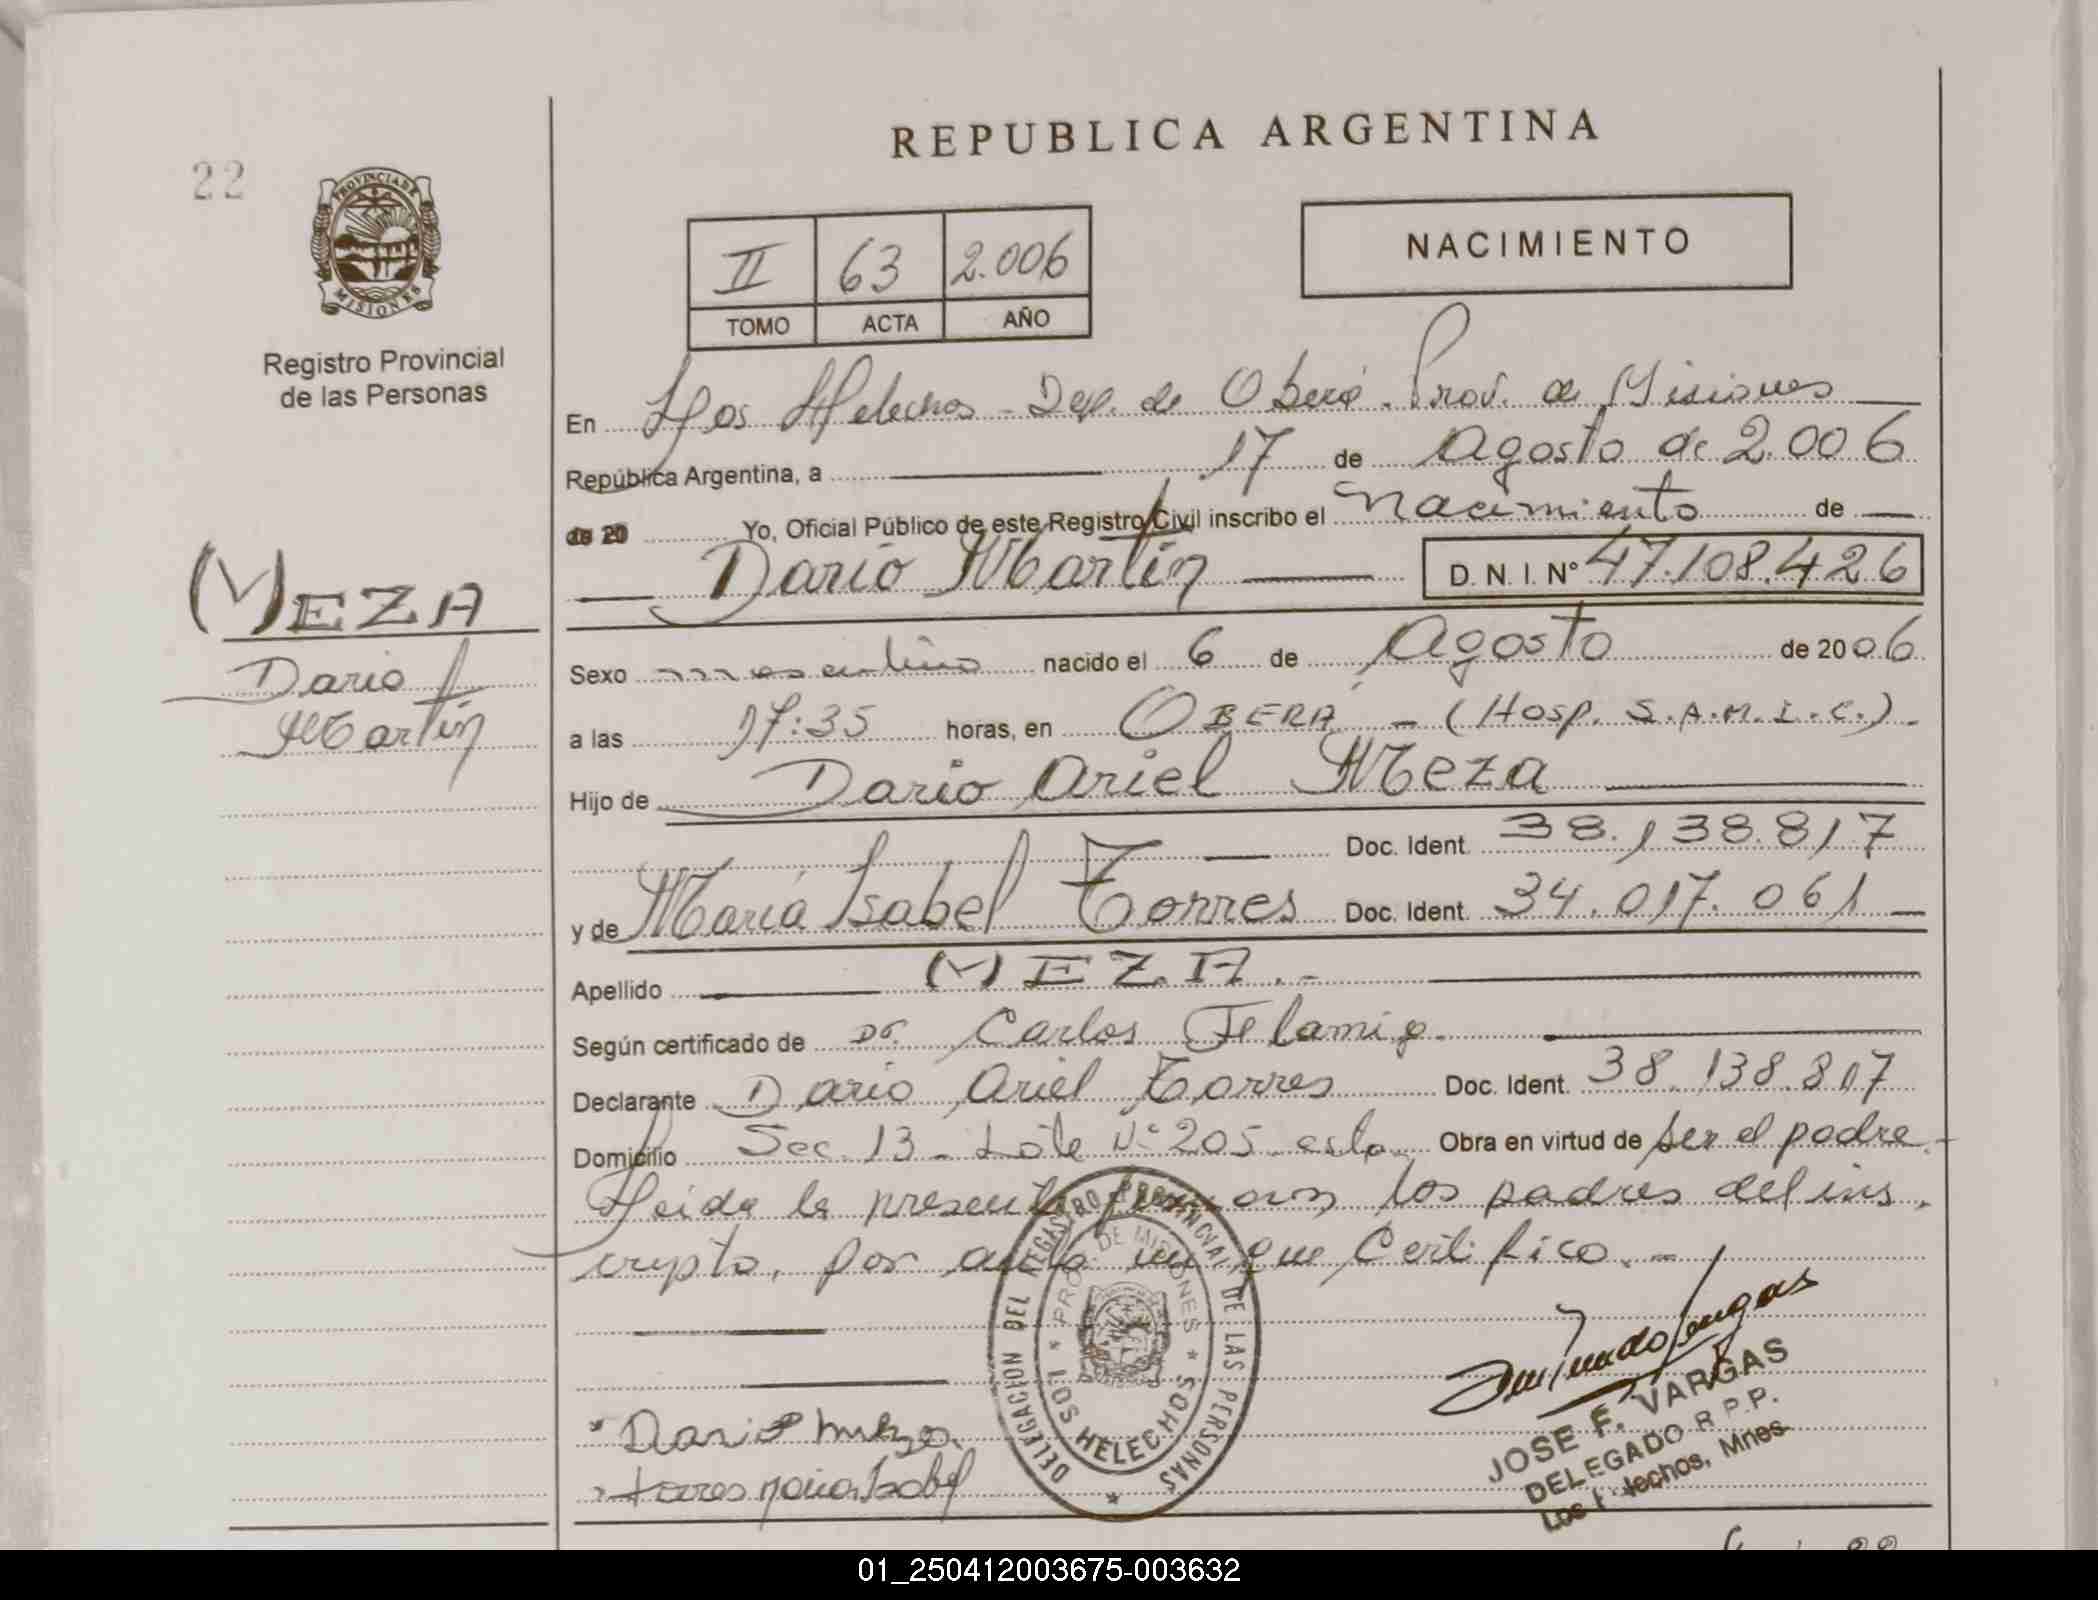 REPUBLICA ARGENTINA
22
PROVINCIA DE
MISIONES
Registro Provincial
de las Personas
II 63 2.006
TOMO ACTA AÑO
NACIMIENTO
En Los Helechos - Dep. de Oberá. Prov. de Misiones
República Argentina, a 17 de Agosto de 2.006
de 20 Yo, Oficial Público de este Registro Civil inscribo el Nacimiento de
Dario Martín D. N. I. Nº 47.108.426
MEZA
Dario
Martín
Sexo masculino nacido el 6 de Agosto de 2006
a las 17:35 horas, en OBERÁ - (Hosp. S.A.M.I.C.).
Hijo de Dario Ariel Meza
Doc. Ident. 38.138.817
y de María Isabel Torres Doc. Ident. 34.017.061
Apellido MEZA.-
Según certificado de Dr. Carlos
Declarante Dario Ariel Torres Doc. Ident. 38.138.817
Domicilio Sec. 13 - Lote Nº 205 esta Obra en virtud de ser el padre.
Leida la presente firman los padres del ins.
crypto, por ante mi que Certifico.-
DELEGACION DEL REGISTRO PROVINCIAL DE LAS PERSONAS
PROV. DE MISIONES
LOS HELECHOS
Dario Meza.
Torres Maria Isabel
JOSE F. VARGAS
DELEGADO R.P.P.
Los Helechos, Mnes.
01_250412003675-003632